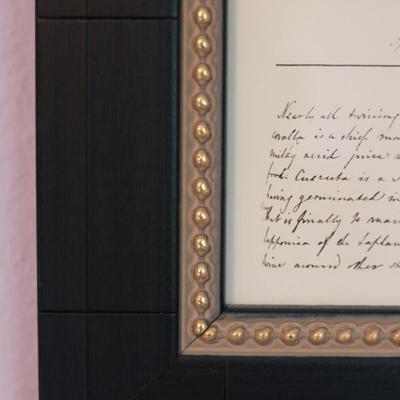 Nearly all twining
corolla is a chief
milky acid juice
food. Cuscuta is a
having germinated in
that is finally to
lapponica of the Laplan
twine around other